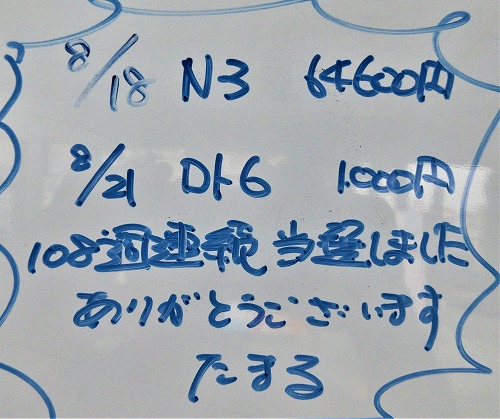 8/18 N3 64600円
8/21 ロト6 1.000円
108週連続当選しました
ありがとうございます
たまる